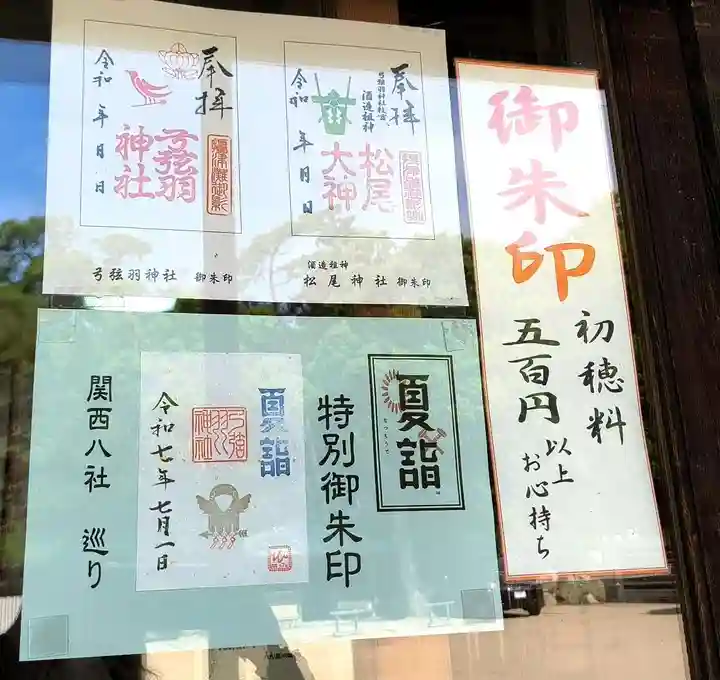 奉拝
弓弦羽
神社
令和 年 月 日
弓弦羽神社 御朱印
奉拝
弓弦羽神社校宮
酒造祖神
松尾
大神
令和 年 月 日
酒造祖神
松尾神社 御朱印
御朱印
初穂料
五百円
以上
お心持ち
夏詣
なつもうで
特別御朱印
夏詣
令和七年七月一日
関西八社 巡り